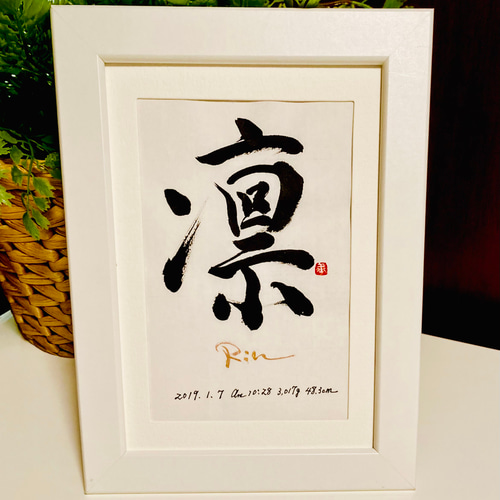 凛
Rin
2019.1.7 am 10:28 3,017g 48.3cm